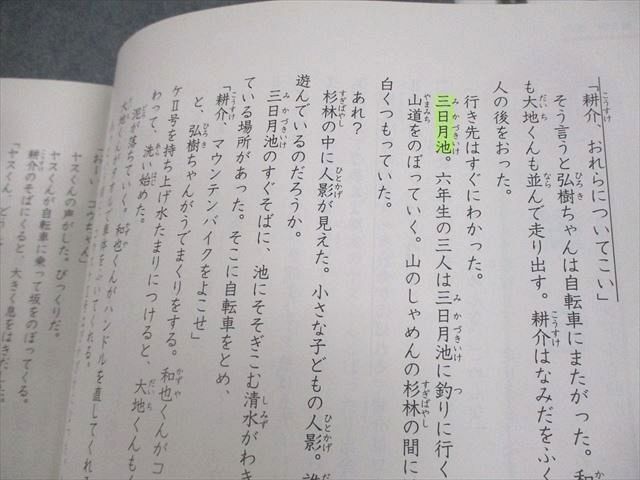 「耕介、おれらについてこい」
そう言うと弘樹ちゃんは自転車にまたがった。和
も大地くんも並んで走り出す。耕介はなみだをふく
人の後をおった。
行き先はすぐにわかった。
三日月池。六年生の三人は三日月池に釣りに行く
山道をのぼっていく。山のしゃめんの杉林の間に
白くつもっていた。
あれ？
杉林の中に人影が見えた。小さな子どもの人影。誰
遊んでいるのだろうか。
三日月池のすぐそばに、池にそそぎこむ清水がわき
ている場所があった。そこに自転車をとめ、
「耕介、マウンテンバイクをよこせ」
と、弘樹ちゃんがうでまくりをする。和也くんがコ
ケⅡ号を持ち上げ水たまりにつけると、大地くんもく
わって、洗い始めた。
泥が落ちていく。和也くんがハンドルを直してくれる
ヤスくんの声がした。びっくりだ。
ヤスくんが自転車に乗って坂をのぼってくる。
耕介のそばにくると、大きく息をはきだした。